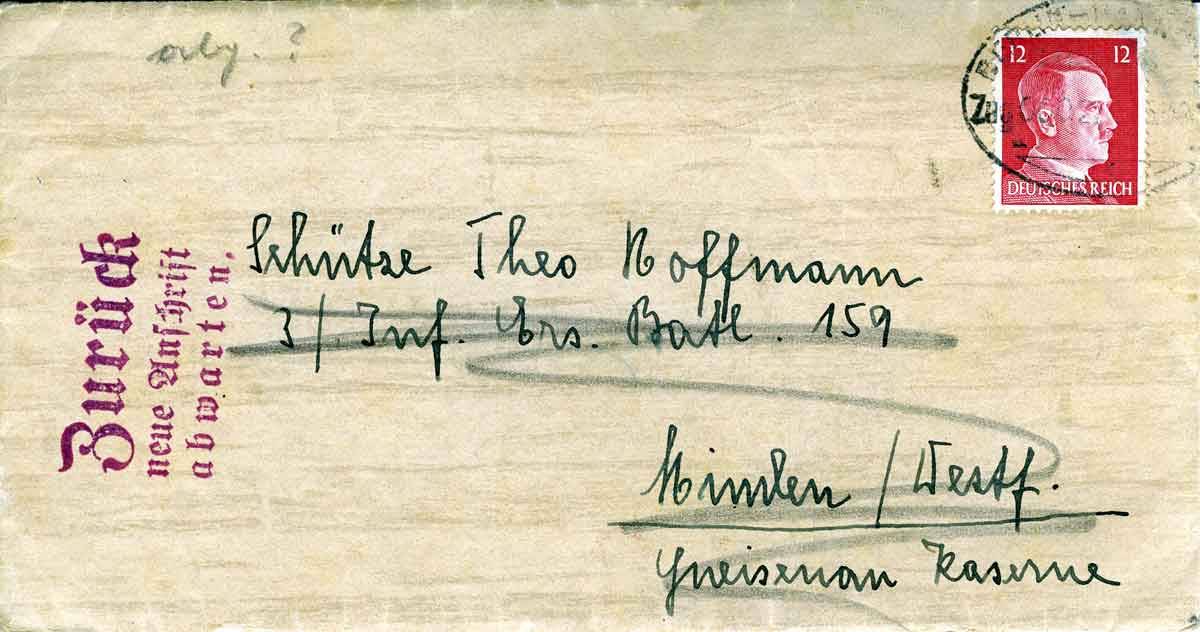 12 12
DEUTSCHES REICH
Zug
Zurück
neue Anschrift
abwarten.
Schütze Theo Hoffmann
3/. Inf. Ers. Batl. 159
Minden / Westf.
Gneisenau Kaserne